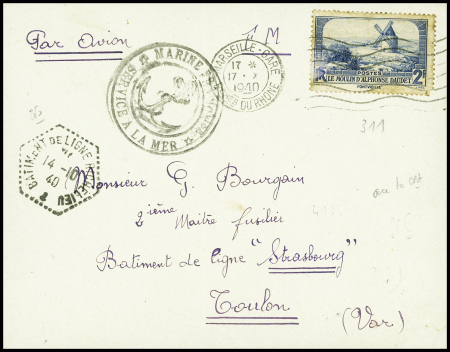 Par Avion
F.M
MARINE FRANÇAISE
SERVICE A LA MER
MARSEILLE-GARE
17 *
17 - X
1940
BCHES DU RHÔNE
POSTES
2F
LE MOULIN D'ALPHONSE DAUDET
FONTVIEILLE
311
BATIMENT DE LIGNE RICHELIEU
14-10
40
Monsieur G. Bourgain
2ième Maitre fusilier
Batiment de ligne "Strasbourg"
Toulon
(Var)